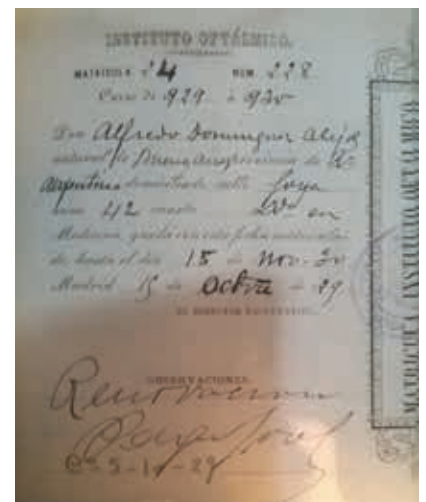 INSTITUTO OFTÁLMICO.
MATRÍCULA nº 4 NUM. 228
Curso de 929 a 930
Don Alfredo Dominguez Alejo
natural de Buenos Aires provincia de
Argentina domiciliado calle Goya
núm 42 cuarto en
Medicina, queda con esta fecha matricula-
do hasta el día 15 de Nov. 30
Madrid 15 de Octbre de 29
EL DIRECTOR FACULTATIVO,
OBSERVACIONES.
Renovacion
MATRÍCULA INSTITUTO OFTÁLMICO